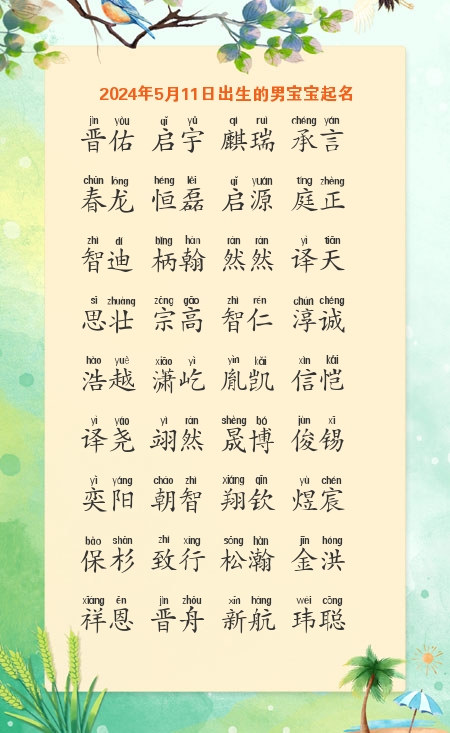 2024年5月11日出生的男宝宝起名
jìn yòu qǐ yǔ qí ruì chéng yán
晋佑 启宇 麒瑞 承言
chūn lóng héng lěi qǐ yuán tíng zhèng
春龙 恒磊 启源 庭正
zhì dí bǐng hàn rán rán yì tiān
智迪 柄翰 然然 译天
sī zhuàng zōng gāo zhì rén chún chéng
思壮 宗高 智仁 淳诚
hào yuè xiāo yì yìn kǎi xìn kǎi
浩越 潇屹 胤凯 信恺
yì yáo yì rán shèng bó jùn xī
译尧 翊然 晟博 俊锡
yì yáng cháo zhì xiáng qīn yù chén
奕阳 朝智 翔钦 煜宸
bǎo shān zhì xíng sōng hàn jīn hóng
保杉 致行 松瀚 金洪
xiáng ēn jìn zhōu xīn háng wěi cōng
祥恩 晋舟 新航 玮聪